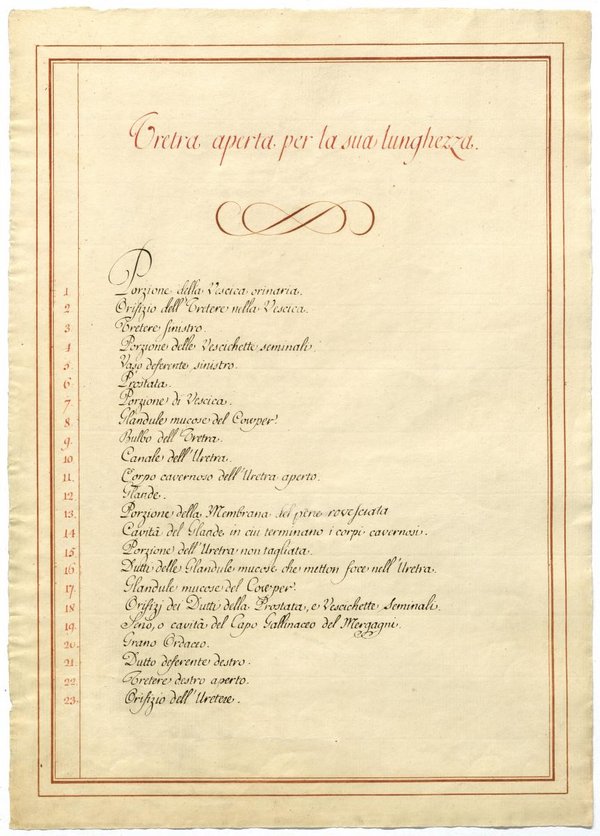 Vretra aperta per la sua lunghezza.
1 Porzione della Vescica orinaria.
2 Orifizio dell'Vretere nella Vescica.
3 Vretere sinistro.
4 Porzione delle Vescichette seminali.
5. Vaso deferente sinistro.
6 Prostata.
7. Porzione di Vescica.
8. Glandule mucose del Cowper.
9. Bulbo dell'Vretra.
10. Canale dell'Uretra.
11. Corpo cavernoso dell'Uretra aperto.
12. Glande.
13. Porzione della Membrana del pene rovesciata
14 Cavità del Glande in ciu terminano i corpi cavernosi.
15. Porzione dell'Uretra non tagliata.
16 Dutti delle Glandule mucose che metton foce nell'Uretra.
17. Glandule mucose del Cowper.
18 Orifizj dei Dutti della Prostata, e Vescichette Seminali.
19. Seno, o cavità del Capo Gallinaceo del Mergagni.
20. Grano Ordaceo.
21. Dutto deferente destro.
22. Vretere destro aperto.
23. Orifizio dell'Uretere.